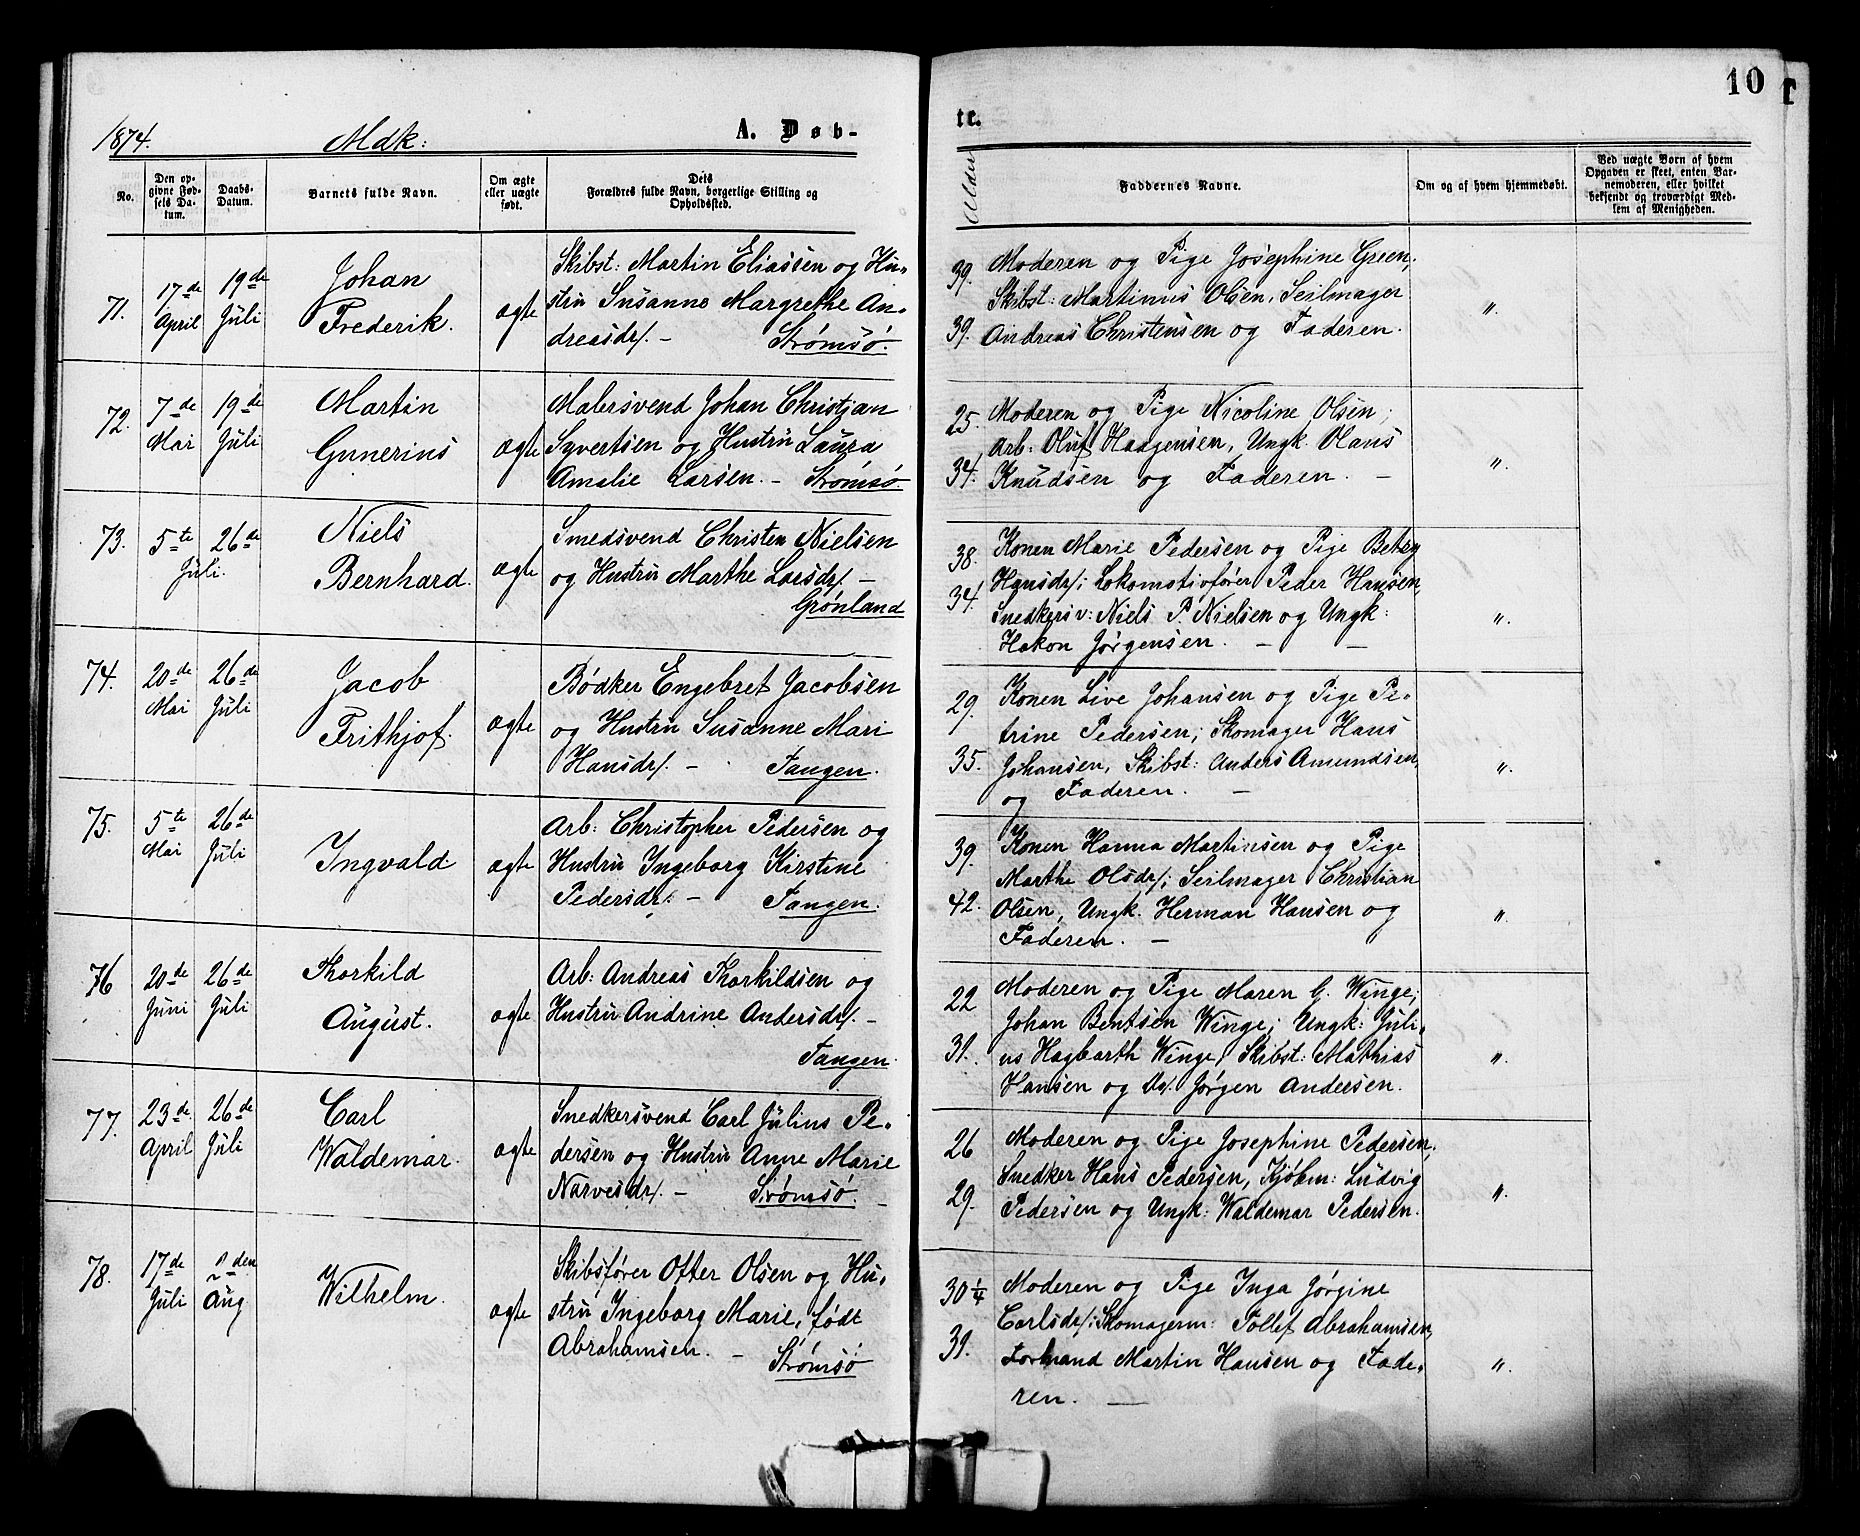 10
1874.
Mdk:
A. Døb-
te.
No.
Den op-
givne Fød-
sels Da-
tum.
Daabs-
Datum.
Barnets fulde Navn.
Om ægte
eller uægte
født.
Dets
Forældres fulde Navn, borgerlige Stilling og
Opholdssted.
Alder
Faddernes Navne.
Om og af hvem hjemmedøbt.
Ved uægte Born af hvem
Opgaven er skeet, enten Bar-
nemoderen, eller hvilket
bekjendt og troværdigt Med-
lem af Menigheden.
71.
17de
April
19de
Juli
Johan
Frederik.
ægte
Skibst: Martin Eliassen og Hu-
stru Susanne Margrethe An-
dreasdr/. - Strømsø.
39.
39.
Moderen og Pige Josephine Green;
Skibst: Martinus Olsen, Seilmager
Andreas Christensen og Faderen.
"
72.
7de
Mai
19de
Juli
Martin
Gunerius
ægte
Malersvend Johan Christian
Syvertsen og Hustru Laura
Amalie Larsen. - Strømsø.
25.
34.
Moderen og Pige Nicoline Olsen;
Arb: Oluf Haagensen, Ungk. Olaus
Knudsen og Faderen. -
"
73.
5te
Juli.
26de
Niels
Bernhard.
ægte
Smedsvend Christen Nielsen
og Hustru Marthe Larsdr/. -
Grønland
38.
34.
Konen Marie Pedersen og Pige Betzy
Hansdr/; Lokomotivfører Peder Hansen,
Snedkersv: Niels P. Nielsen og Ungk:
Hakon Jørgensen. - -
"
74.
20de
Mai
26de
Juli
Jacob
Frithjof.
ægte
Bødker Engebret Jacobsen
og Hustru Susanne Mari
Hansdr/. - Tangen.
29.
35.
Konen Live Johansen og Pige Pe-
trine Pedersen; Skomager Hans
Johansen, Skibst: Anders Amundsen,
og Faderen. -
"
75.
5te
Mai
26de
Juli
Ingvald
ægte
Arb: Christopher Pedersen og
Hustru Ingeborg Kirstine
Pedersdr/. - Tangen.
39.
42.
Konen Hanna Martinsen og Pige
Marthe Olsdr/; Seilmager Christian
Olsen, Ungk. Herman Hansen og
Faderen. -
"
76
20de
Juni
26de
Juli
Thorkild
August.
ægte
Arb: Andreas Thorkildsen og
Hustru Andrine Andersdr/. -
Tangen.
22
31.
Moderen og Pige Maren C. Winge;
Johan Bentsen Winge; Ungk: Juli-
us Hagbarth Winge, Skibst: Mathias
Hansen og Do/. Jørgen Andersen.
"
77.
23de
April
26de
Juli
Carl
Waldemar.
ægte
Snedkersvend Carl Julius Pe-
dersen og Hustru Anne Marie
Narvesdr/. - Strømsø. -
26
29.
Moderen og Pige Josephine Pedersen,
Snedker Hans Pedersen, Kjøbm: Ludvig
Pedersen og Ungk: Waldemar Pedersen.
"
78.
17de
Juli
den
Aug
Wilhelm.
ægte
Skibsfører Otter Olsen og Hu-
stru Ingeborg Marie, født
Abrahamsen. -
Strømsø
30 1/4
39.
Moderen og Pige Inga Jørgine
Carlsdr/; Skomagerm: Tollef Abrahamsen,
Formand Martin Hansen og Fade-
ren. -
"